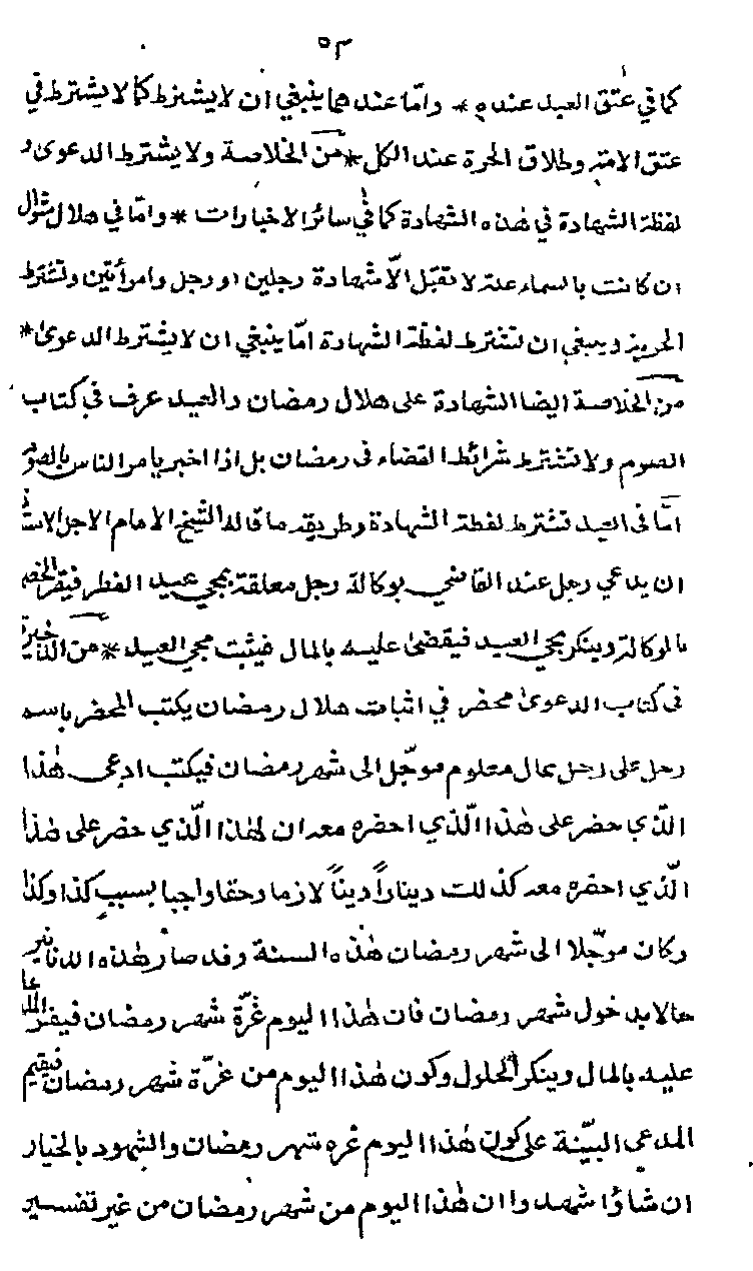 ٥٣
كما في عتق العبد عنده * وامّا عندهما ينبغي ان لا يشترط كما لا يشترط في
عتق الامة وطلاق الحرة عند الكل * من الخلاصة ولا يشترط الدعوى و
لفظة الشهادة في هذه الشهادة كما في سائر الاخبارات * وامّا في هلال شوال
ان كانت بالسماء علة لا تقبل الّا شهادة رجلين او رجل وامرأتين وتشترط
الحرية وينبغي ان تشترط لفظة الشهادة امّا ينبغي ان لا يشترط الدعوى *
من الخلاصة ايضا الشهادة على هلال رمضان والعيد عرف في كتاب
الصوم ولا تشترط شرائط القضاء في رمضان بل اذا اخبر يامر الناس بالصوم
امّا في العيد تشترط لفظة الشهادة وطريقه ما قاله الشيخ الامام الاجل
ان يدعي رجل عند القاضي بوكالة رجل معلقة بمجي عيد الفطر فيقر الخصم
بالوكالة وينكر مجي العيد فيقضى عليه بالمال فيثبت مجي العيد * من الذخيرة
في كتاب الدعوى محضر في اثبات هلال رمضان يكتب المحضر باسم
رجل على رجل بمال معلوم موجّل الى شهر رمضان فيكتب ادعى هذا
الّذي حضر على هذا الّذي احضره معه ان لهذا الّذي حضر على هذا
الّذي احضره معه كذلك ديناراً ديناً لازما وحقا واجبا بسبب كذا وكذا
وكان موجّلا الى شهر رمضان هذه السنة وقد صار هذه الدنانير
حالا بدخول شهر رمضان فان هذا اليوم غرّة شهر رمضان فيقر المدعا
عليه بالمال وينكر الحلول وكون هذا اليوم من غرّة شهر رمضان فيقيم
المدعي البيّنة على كون هذا اليوم غره شهر رمضان والشهود بالخيار
ان شاؤا شهدوا ان هذا اليوم من شهر رمضان من غير تفسير